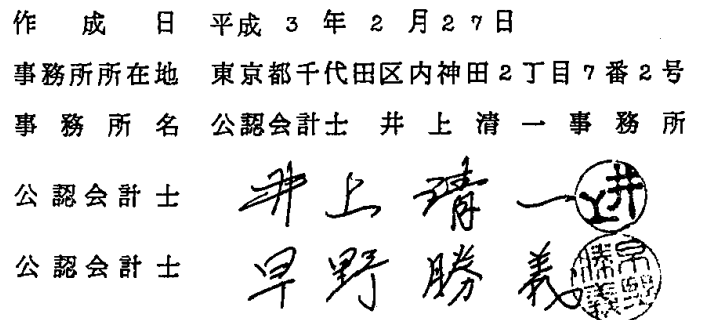 作成日 平成3年2月27日
事務所所在地 東京都千代田区内神田2丁目7番2号
事務所名 公認会計士 井上清一事務所
公認会計士 井上清一 井上
公認会計士 早野勝義 早野勝義